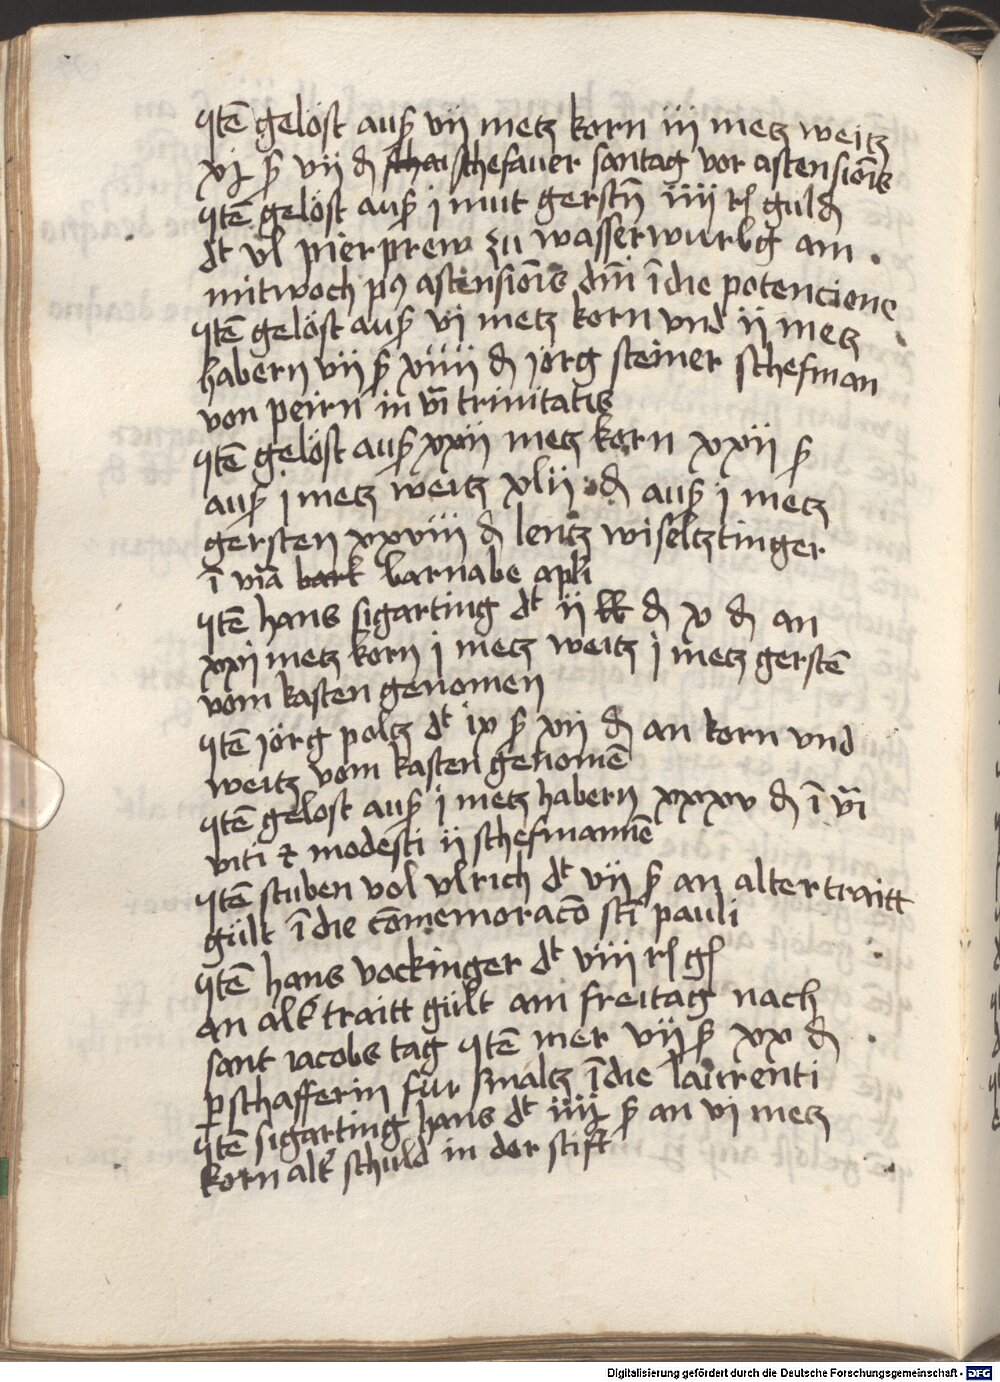 Jtē gelöst ausz vij metz korn iij metz weitz
xj ß vij đ schai schefauer santag vor astensiōis
Jtē gelöst ausz j mut gerstn̄ iiij rſ guldn̄
dt vl pierprew zu wasserwurbg am
mitwoch pꝯ astensiōis dm̄i ī die potencione
Jtē gelöst ausz vj metz korn vnd ij metz
habern vij ß xiiij đ jörg steiner schefman
von peirn in vī trinitatis
Jtē gelöst ausz xxij metz korn xxij ß
ausz j metz weitz xlij đ ausz j metz
gersten xxviij đ lentz wiseltztinger
ī viā bark barnabe apl̄i
Jtē hans sigarting dt ij ℔ đ x đ an
xxj metz korn j metz weitz j metz gerstē
vom kasten genomen
Jtē jörg poltz dt ix ß xij đ an korn vnd
weitz vom kasten genomē
Jtē gelost ausz j metz habern xxxv đ ī vī
viti ⁊ modesti ij schefmannē
Jtē stuben vol vlrich dt vij ß an alter traitt
gült ī die cōmemoracō scti pauli
Jtē hans vockinger dt viij rſ gſ
an alt' traitt gült am freitag nach
sant iacobs tag Jtē mer vij ß xx đ
p schafferin für smaltz ī die laurenti
Jtē sigarting hans dt iiij ß an vj metz
korn alt' schuld in der stift
Digitalisierung gefördert durch die Deutsche Forschungsgemeinschaft - DFG